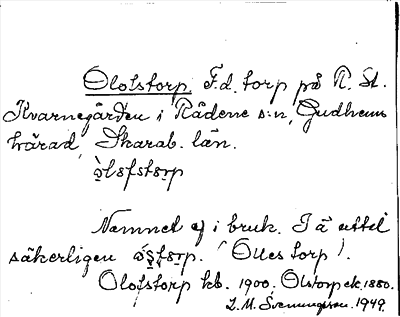 Olofstorp F.d. torp på R. St.
Kvarnegården i Rådene s:n, Gudhems
härad, Skarab. län.
òlofstorp
Namnet ej i bruk. I ä uttal
säkerligen torp. (Olles torp).
Olofstorp kb. 1900. Olstorp ek. 1880.
L. M. Svenungsson. 1949.